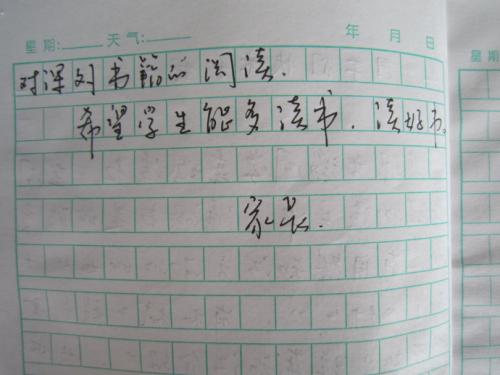 星期: 天气: 年 月 日
对课外书籍的阅读.
希望学生能多读书.读好书。
家长.
星期